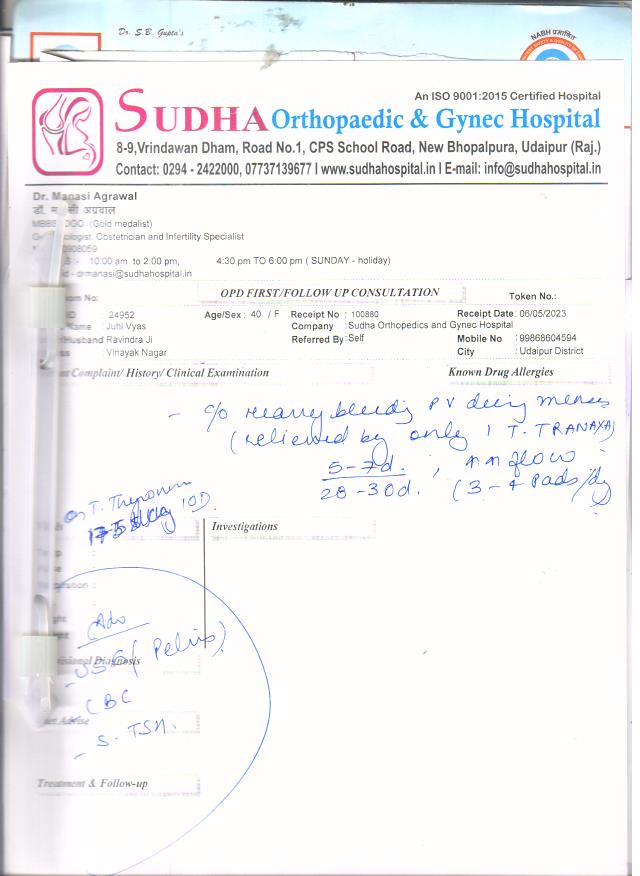 Dr. S.B. Gupta's
NABH प्रमाणित
An ISO 9001:2015 Certified Hospital
SUDHA Orthopaedic & Gynec Hospital
8-9,Vrindawan Dham, Road No.1, CPS School Road, New Bhopalpura, Udaipur (Raj.)
Contact: 0294 - 2422000, 07737139677 I www.sudhahospital.in I E-mail: info@sudhahospital.in
Dr. Manasi Agrawal
अग्रवाल
(Gold medalist)
Obstetrician and Infertility Specialist
908059
10:00 am to 2:00 pm, 4:30 pm TO 6:00 pm ( SUNDAY - holiday)
drmanasi@sudhahospital.in
OPD FIRST/FOLLOW UP CONSULTATION
No: Token No.:
24952 Age/Sex : 40 / F Receipt No : 100880 Receipt Date: 06/05/2023
Name : Juhi Vyas Company : Sudha Orthopedics and Gynec Hospital
Husband Ravindra Ji Referred By : Self Mobile No : 99868604594
: Vinayak Nagar City : Udaipur District
Complaint/ History/ Clinical Examination Known Drug Allergies
- c/o heavy bleeding PV during menses
(relieved by only 1 T. TRANAXA)
5-7d. ; flow
28-30d. (3-4 Pads/dy
On T. Thyronorm
OD
Investigations
Adv
- USG (Pelvis)
Diagnosis
- CBC
Advise
- S. TSH.
Treatment & Follow-up